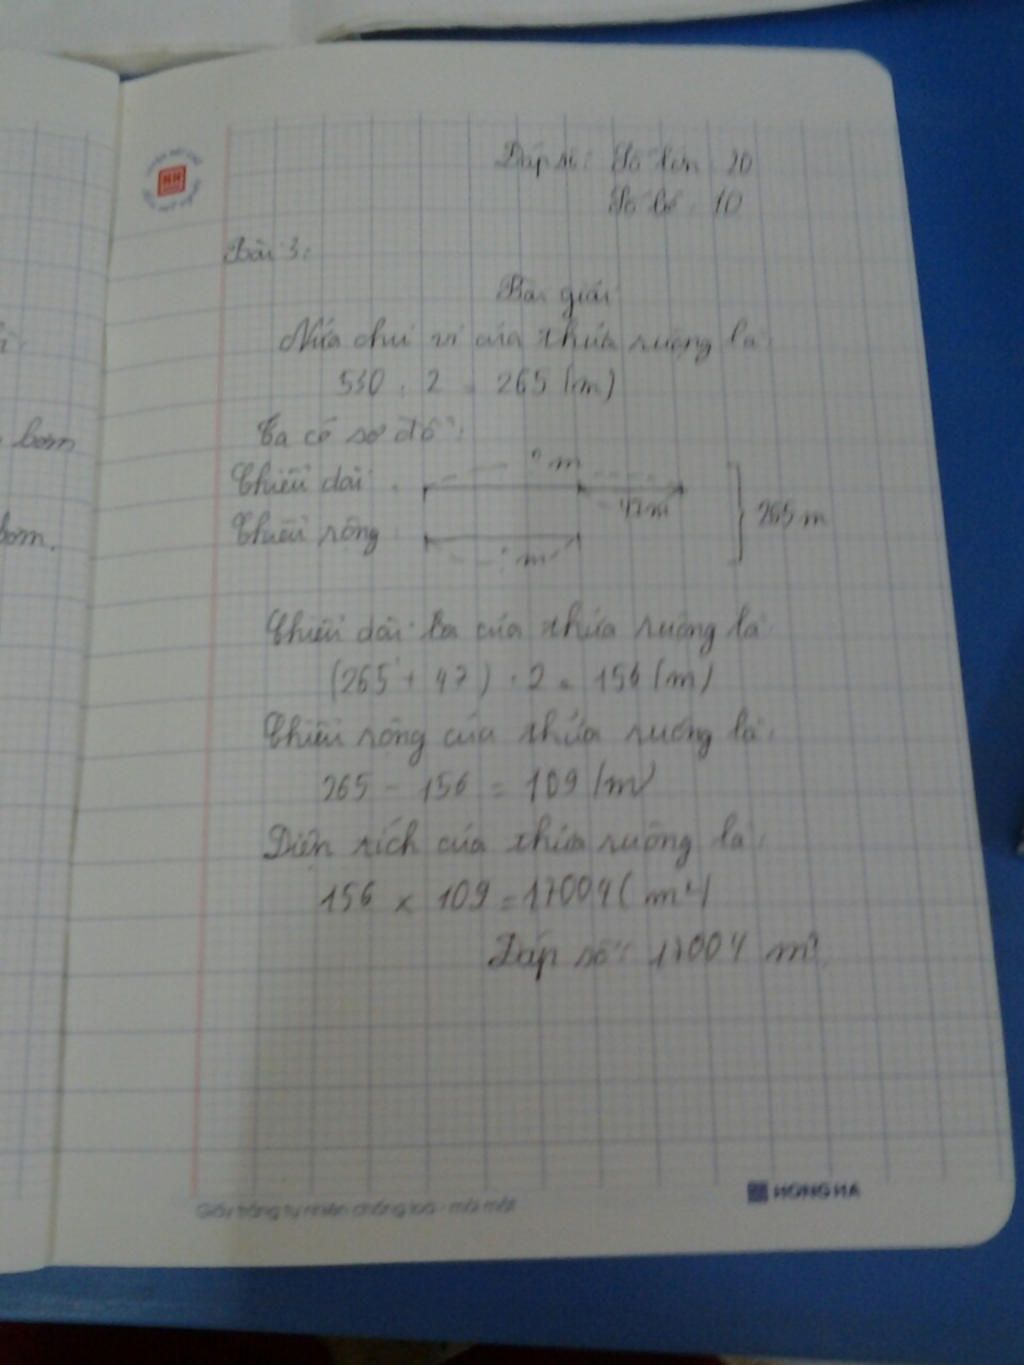 Đáp số: Số lớn: 20
Số bé: 10
Bài 3:
Bài giải
Nửa chu vi của thửa ruộng là:
530 : 2 = 265 (m)
Ta có sơ đồ:
? m
Chiều dài:
47m
265 m
Chiều rộng:
? m
bơm
bơm.
Chiều dài của thửa ruộng là:
(265 + 47) : 2 = 156 (m)
Chiều rộng của thửa ruộng là:
265 - 156 = 109 (m)
Diện tích của thửa ruộng là:
156 x 109 = 17004 (m²)
Đáp số: 17004 m²
Giấy trắng tự nhiên chống loá - mỏi mắt
HONG HA